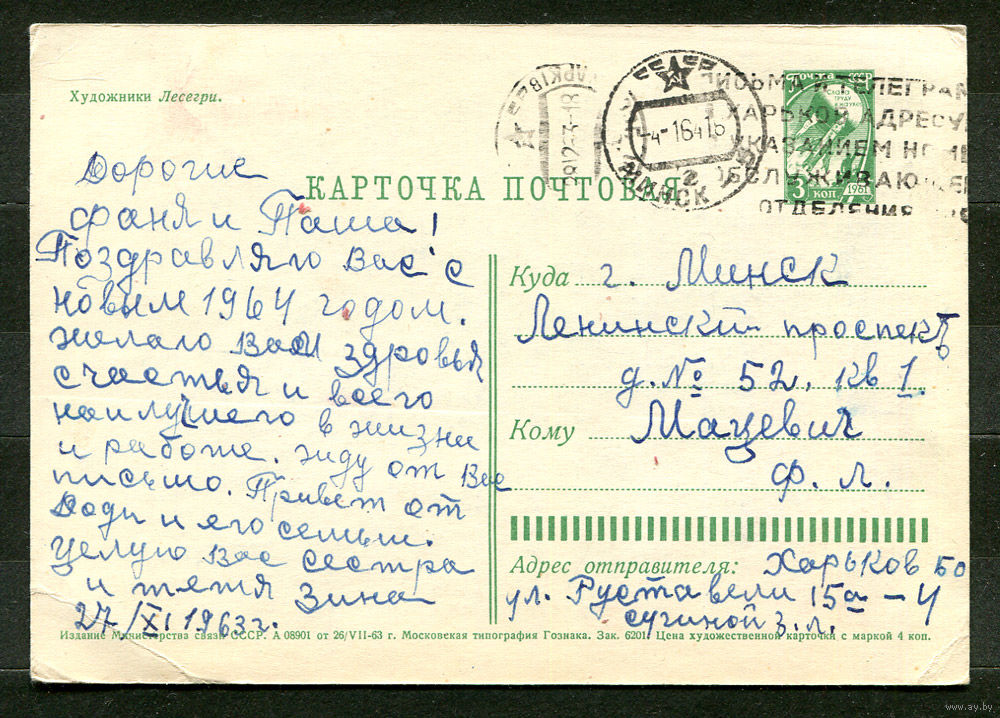 Художники Лесегри.
КАРТОЧКА ПОЧТОВАЯ
ПОЧТА
3 КОП
1961
МИНСК
ПИСЬМА И ТЕЛЕГРАМ
ХАРЬКОВ АДРЕСУ
УКАЗАНИЕМ НОМЕ
ОБСЛУЖИВАЮЩЕГ
ОТДЕЛЕНИЯ
Дорогие
Фаня и Паша!
Поздравляю Вас с
новым 1964 годом.
желаю Вам здровья
счастья и всего
наилучшего в жизни
и работе. жду от Вас
письмо. Привет от
Лоди и его семьи.
целую Вас сестра
и тетя Зина
27/XI 1963 г.
Куда г. Минск
Ленинский проспект
д. № 52. кв 1.
Кому Мацевич
Ф. Л.
Адрес отправителя: Харьков 60
ул. Руставели 15а – 4
Сугиной З. Л.
Издание Министерства связи СССР. А 08901 от 26/VII-63 г. Московская типография Гознака. Зак. 6201. Цена художественной карточки с маркой 4 коп.
www.ay.by